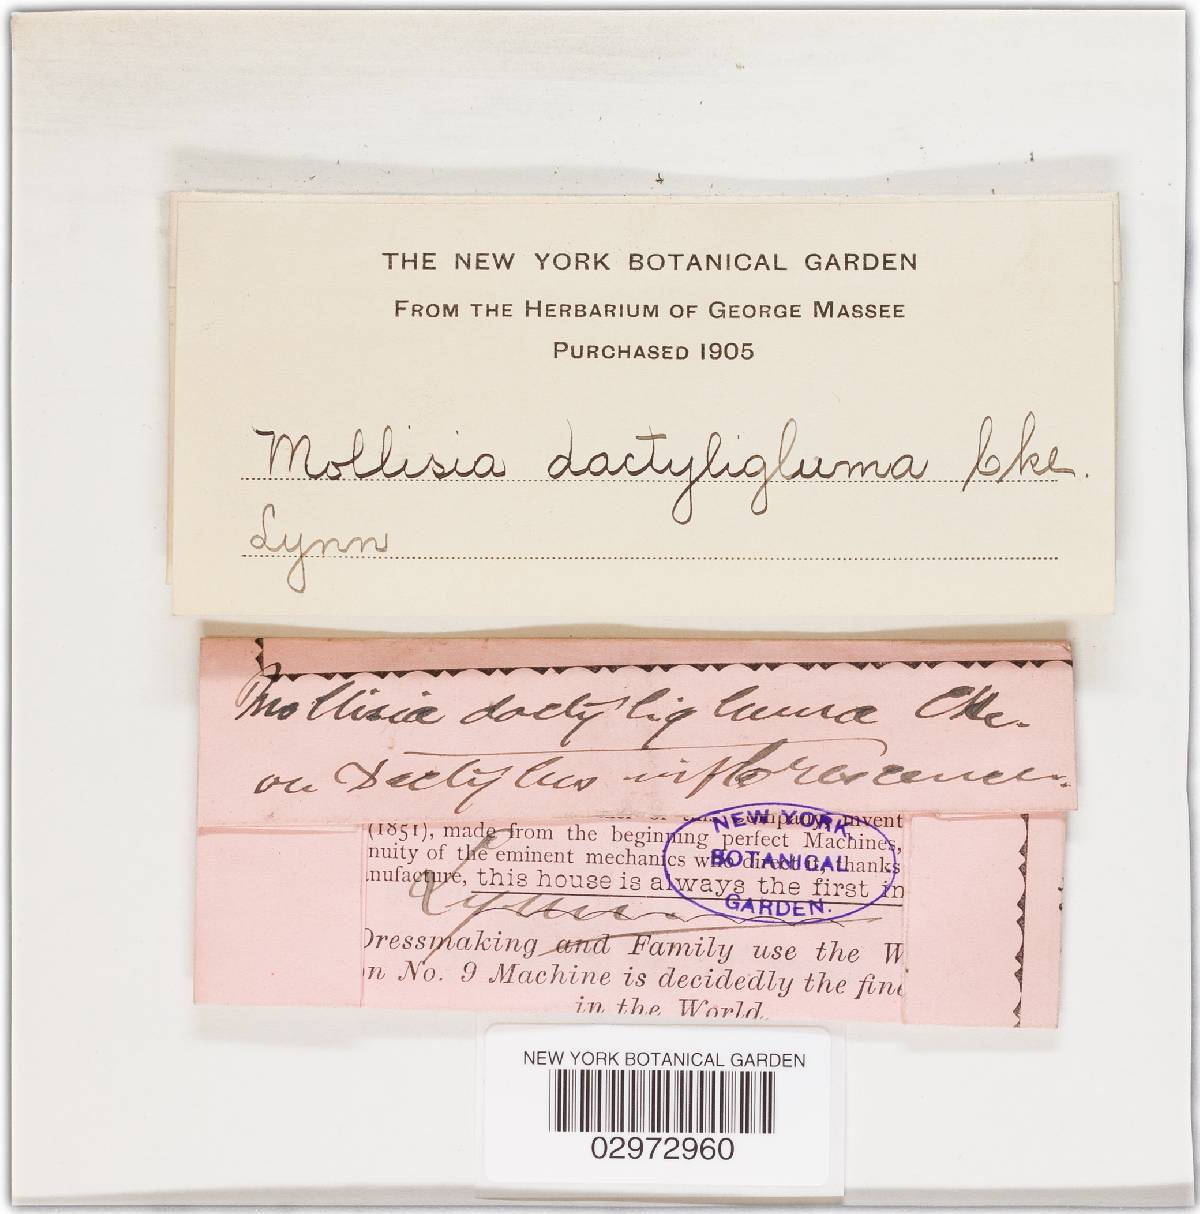 THE NEW YORK BOTANICAL GARDEN
FROM THE HERBARIUM OF GEORGE MASSEE
PURCHASED 1905
Mollisia dactyligluma Cke.
Lynn
Mollisia dactyligluma Cke.
on Dactylus inflorescence.
company, invent
(1851), made from the beginning perfect Machines,
nuity of the eminent mechanics who direct it, thanks
nufacture, this house is always the first in
Lynn
NEW YORK
BOTANICAL
GARDEN.
Dressmaking and Family use the W
n No. 9 Machine is decidedly the fine
in the World.
NEW YORK BOTANICAL GARDEN
02972960